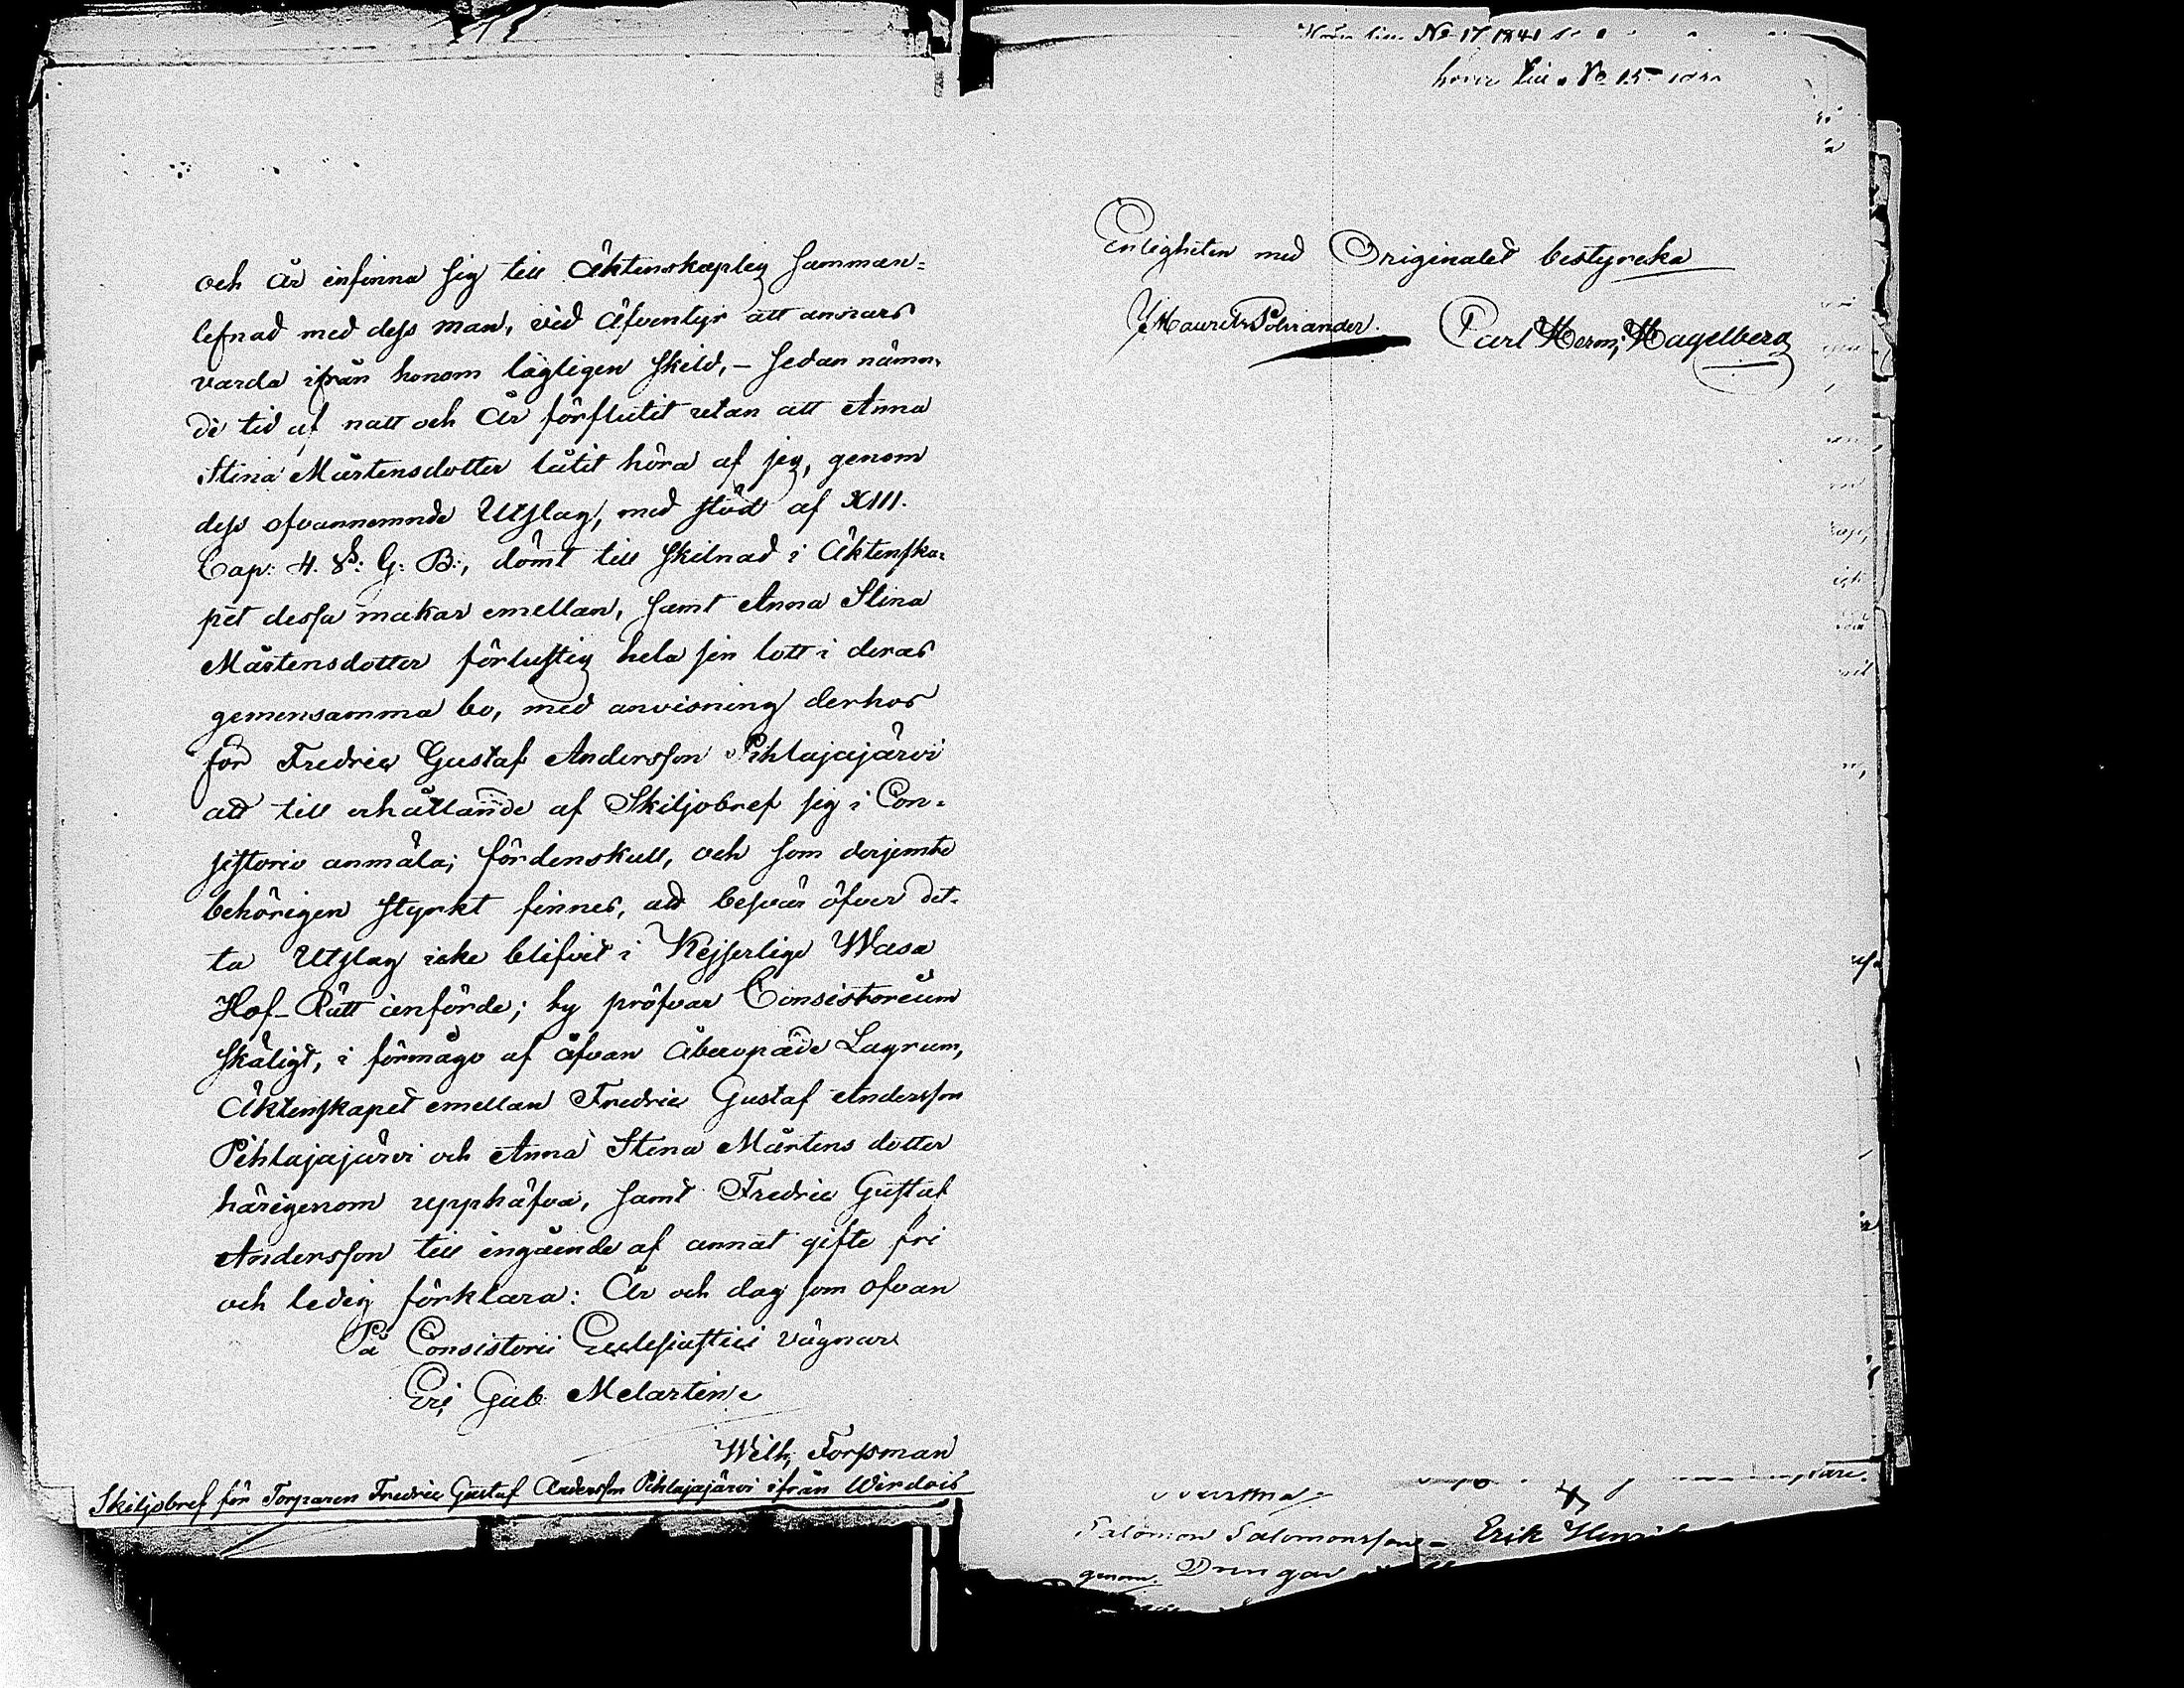 och År infinna sig till Äktenskaplig samman=
lefnad med dess man, vid äfventyr att annars
varda ifrån honom lagligen skild, – sedan nämn=
de tid af natt och År förflutit utan att Anna
Stina Mårtensdotter låtit höra af sig, genom
dess ofvannemnde Utslag, med stöd af XIII.
Cap: 4. §: G: B:, dömt till skilnad i Äktenska=
pet dessa makar emellan, samt Anna Stina
Mårtensdotter förlustig hela sin lott i deras
gemensamma bo, med anvisning derhos
för Fredric Gustaf Andersson Pihlajajärvi
att till erhållande af Skiljobref sig i Con=
sistorio anmäla; fördenskull, och som derjemte
behörigen styrkt finnes, att besvär öfver det=
ta Utslag icke blifvit i Kejserlige Wasa
Hof-Rätt införde; ty pröfvar Consistorium
skäligt, i förmågo af åfvan åberopade Lagrum,
Äktenskapet emellan Fredric Gustaf Andersson
Pihlajajärvi och Anna Stina Mårtens dotter
härigenom upphäfva, samt Fredric Gustaf
Andersson till ingående af annat gifte fri
och ledig förklara: År och dag som ofvan
På Consistorii Ecclesiastici vägnar
Eri; Gab. Melartin
Wilh; Forssman
Skiljobref för Torparen Fredric Gustaf Andersson Pihlajajärvi ifrån Wirdois
No 17 1841
No 15
Enligheten med Originalet bestyrcka
Maurit Polviander. Carl Herm; Hagelberg
Salomon Salomonsson - Erik
genom. Drengar